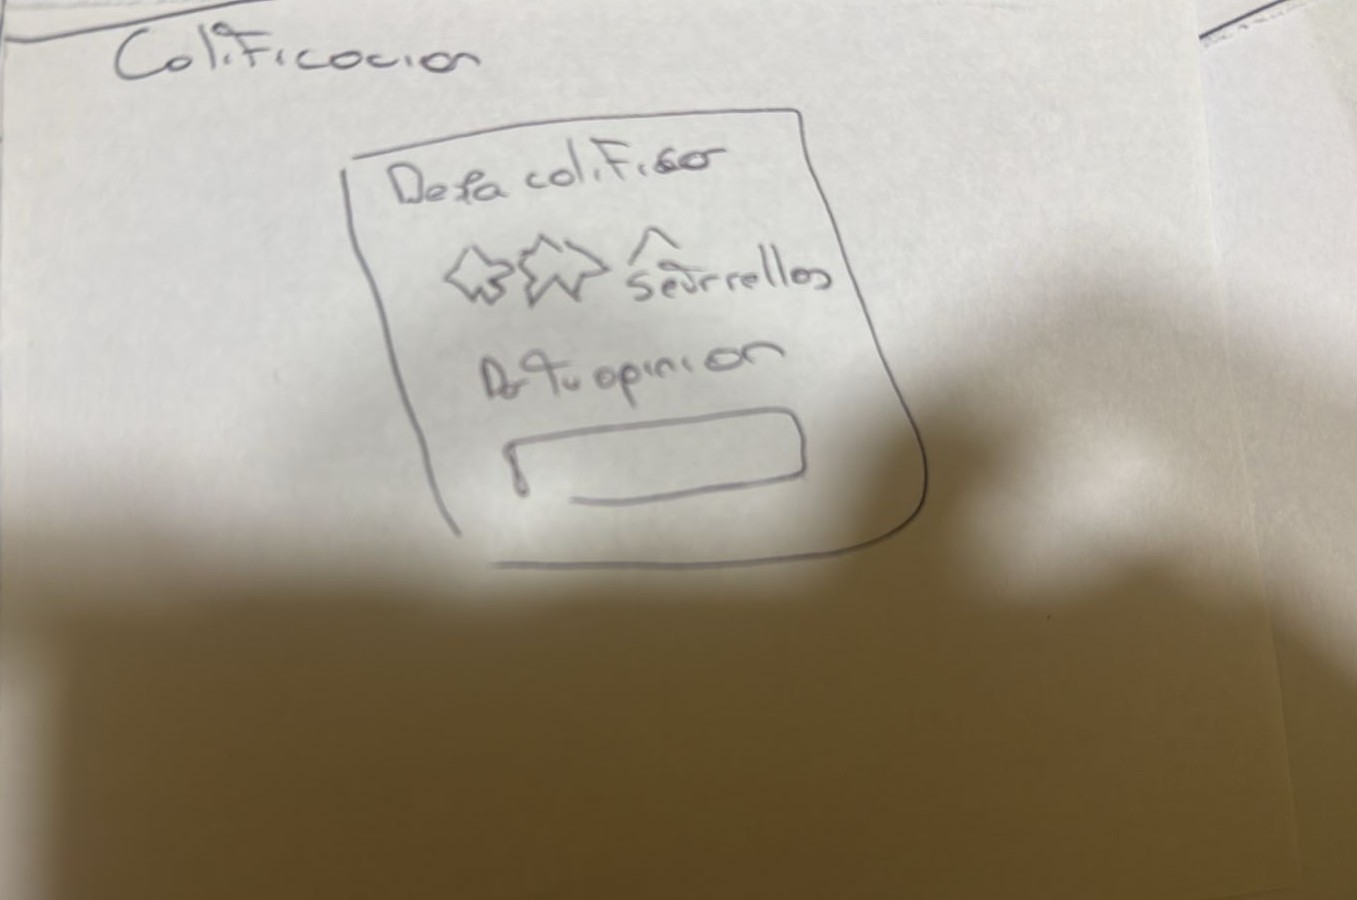 Calificacion
Deja calificar
5 estrellas
Da tu opinion